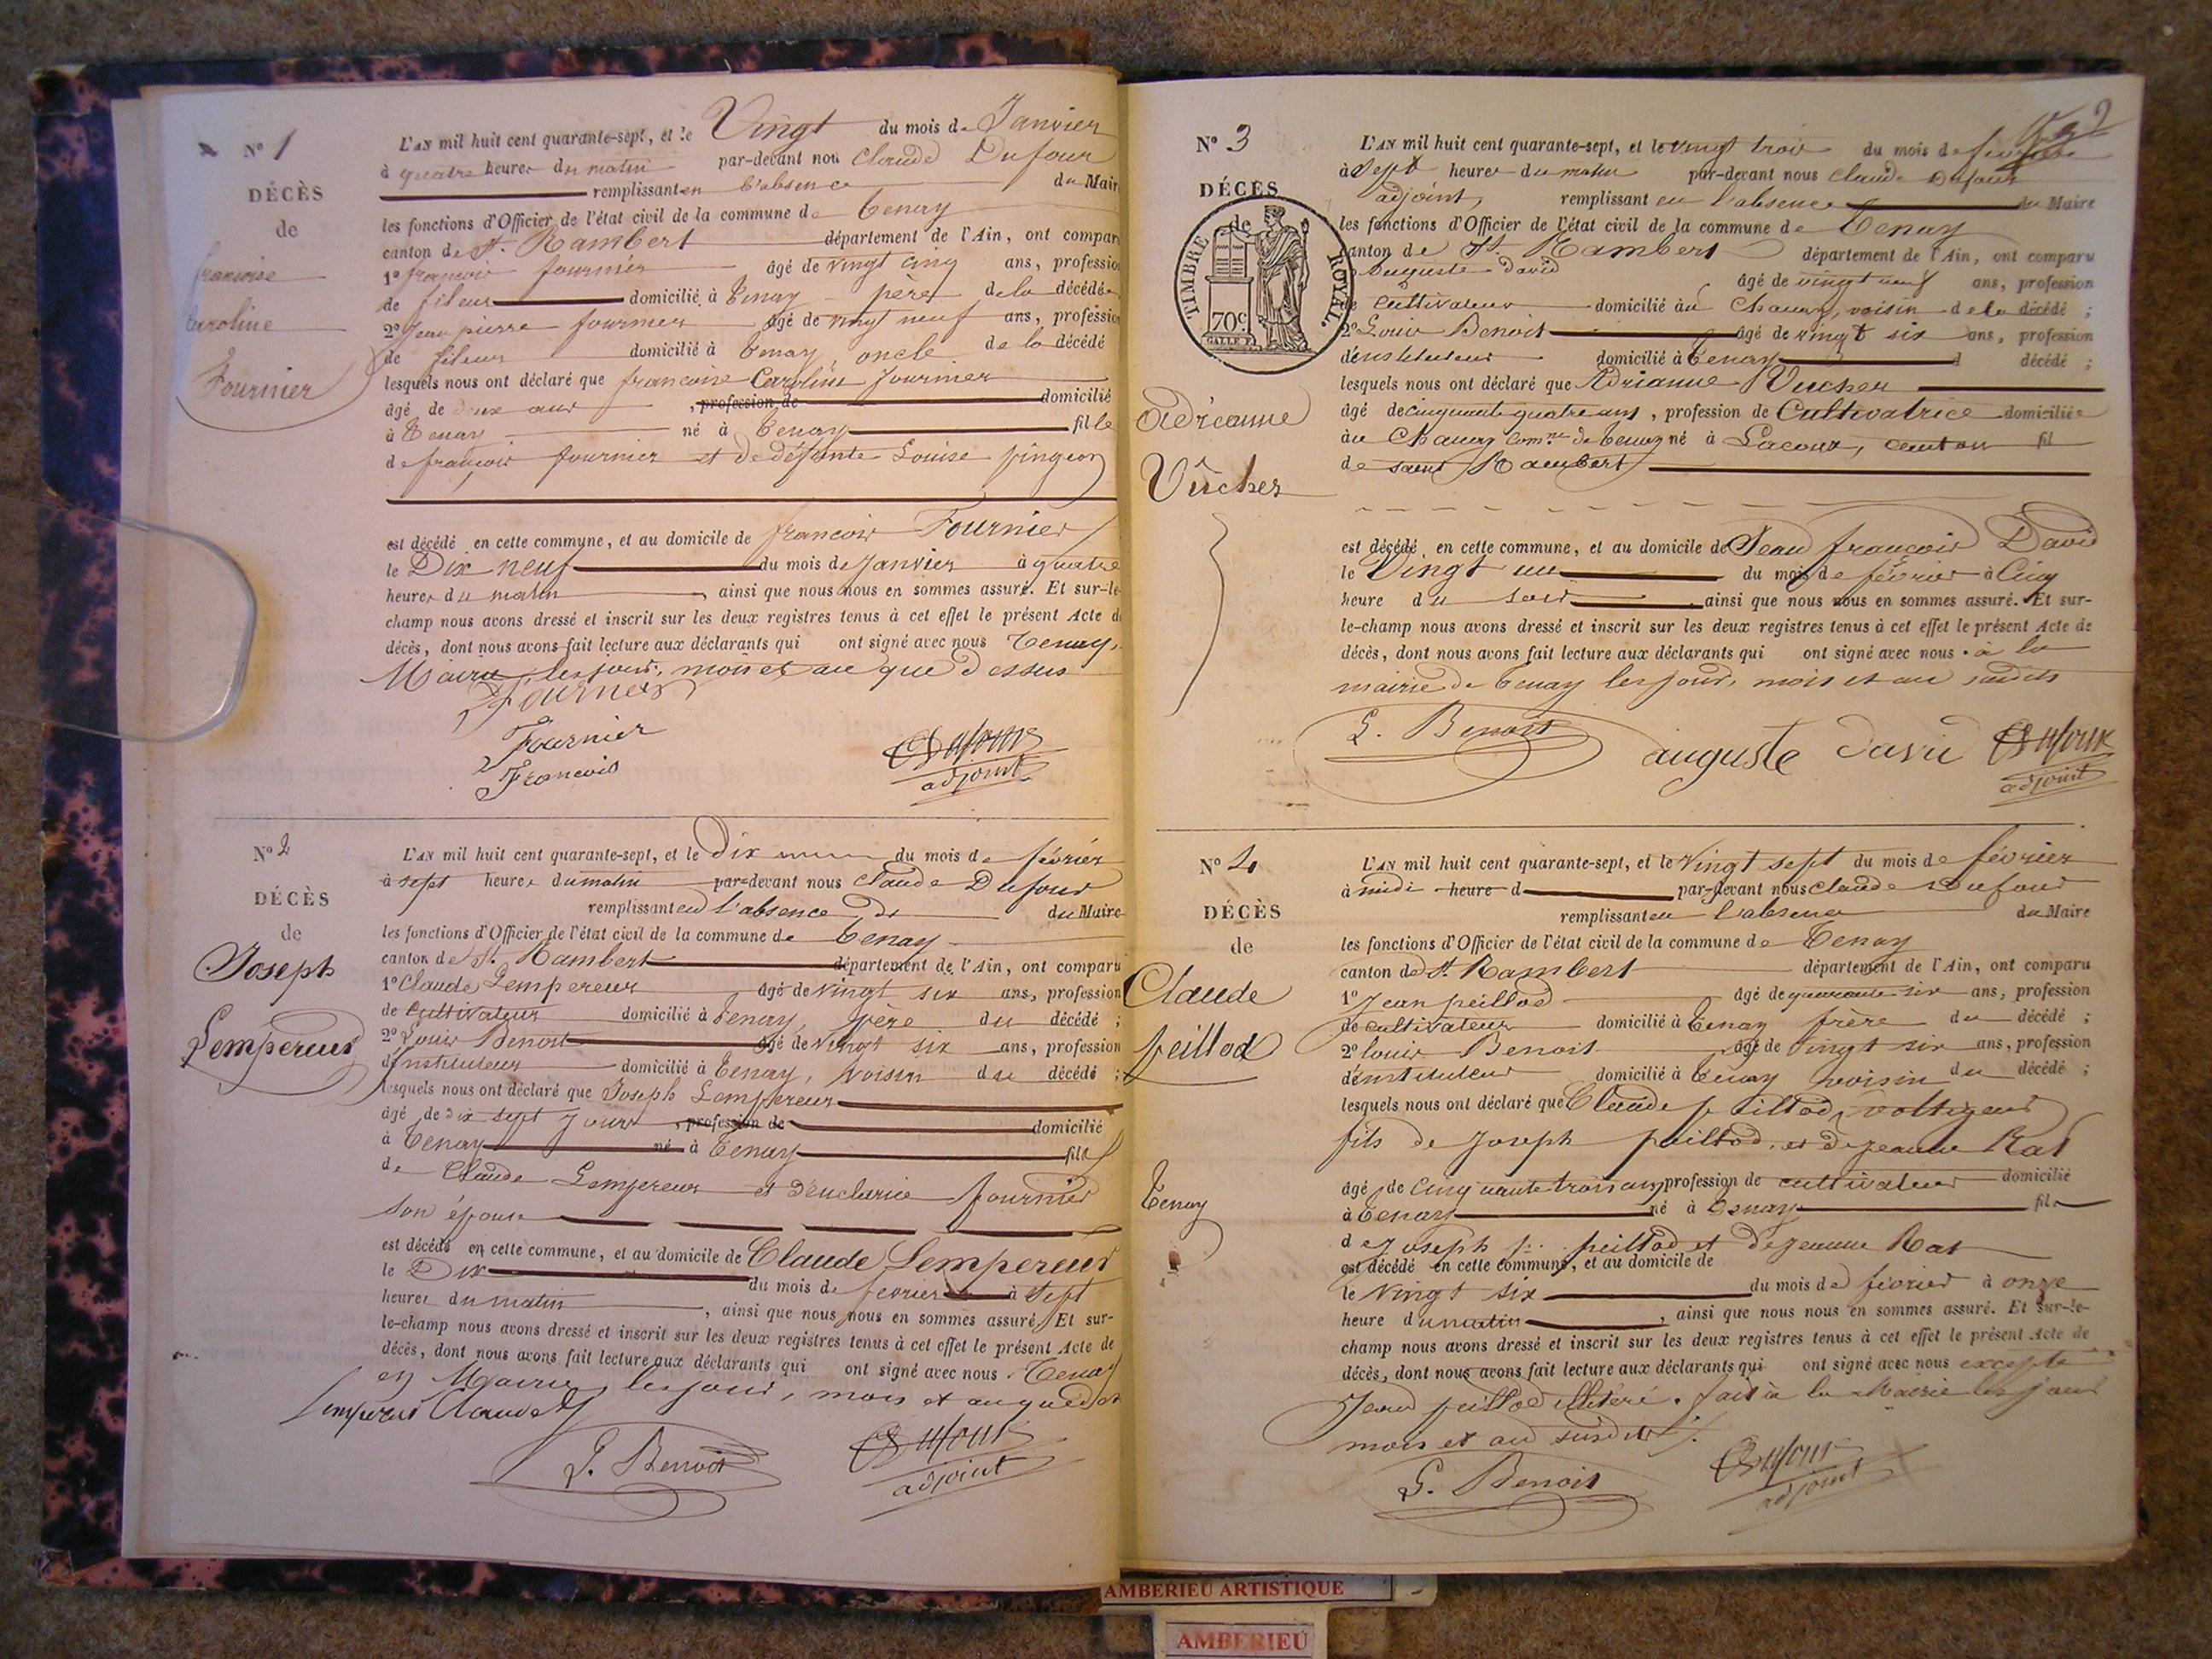 N° 1
DÉCÈS
de
françoise
Caroline
Fournier
L'AN mil huit cent quarante-sept, et le Vingt du mois de Janvier
à quatre heures du matin par-devant nous Claude Dufour
remplissant en l'absence du Maire
les fonctions d'Officier de l'état civil de la commune de Tenay
canton de St. Rambert département de l'Ain, ont comparu
1° françois fournier âgé de vingt cinq ans, profession
de fileur domicilié à Tenay pere de la décédée
2° Jean pierre fournier âgé de vingt neuf ans, profession
de fileur domicilié à Tenay, oncle de la décédé
lesquels nous ont déclaré que françoise Caroline fournier
âgé de deux ans , profession de domicilié
à Tenay né à Tenay fille
de françois fournier et de défunte Louise pingeon
est décédé en cette commune, et au domicile de françois Fournier
le Dix neuf du mois de Janvier à quatre
heures du matin , ainsi que nous nous en sommes assuré. Et sur-le-
champ nous avons dressé et inscrit sur les deux registres tenus à cet effet le présent Acte de
décès, dont nous avons fait lecture aux déclarants qui ont signé avec nous Tenay,
Mairie, les jour, mois et an que dessus
Fournier
Fournier
François
Dufour
adjoint
N° 2
DÉCÈS
de
Joseph
Lempereur
L'AN mil huit cent quarante-sept, et le Dix du mois de février
à sept heures du matin par-devant nous Claude Dufour
remplissant en l'absence de du Maire
les fonctions d'Officier de l'état civil de la commune de Tenay
canton de St. Rambert département de l'Ain, ont comparu
1° Claude Lempereur âgé de vingt six ans, profession
de Cultivateur domicilié à Tenay, père du décédé ;
2° Louis Benoit âgé de vingt six ans, profession
d'instituteur domicilié à Tenay, voisin du décédé ;
lesquels nous ont déclaré que Joseph Lempereur
âgé de dix sept jours , profession de domicilié
à Tenay né à Tenay fils
de Claude Lempereur et fournier
son épouse
est décédé en cette commune, et au domicile de Claude Lempereur
le Dix du mois de fevrier à sept
heures du matin , ainsi que nous nous en sommes assuré. Et sur-
le-champ nous avons dressé et inscrit sur les deux registres tenus à cet effet le présent Acte de
décès, dont nous avons fait lecture aux déclarants qui ont signé avec nous . Tenay
en Mairie, les jour, mois et an que
Lempereur Claude
L. Benoit
Dufour
adjoint
N° 3
DÉCÈS
de
TIMBRE ROYAL
70c.
Adrianne
Vucher
L'AN mil huit cent quarante-sept, et le vingt trois du mois de fevrier
à Sept heures du matin par-devant nous Claude Dufour
adjoint, remplissant en l'absence du Maire
les fonctions d'Officier de l'état civil de la commune de Tenay
canton de St. Rambert département de l'Ain, ont comparu
1° Auguste David âgé de vingt neuf ans, profession
de Cultivateur domicilié au Chanay, voisin de la décédé ;
2° Louis Benoit âgé de vingt six ans, profession
d'instituteur domicilié à Tenay d décédé ;
lesquels nous ont déclaré que Adrianne Vucher
âgé de cinquante quatre ans, profession de Cultivatrice domiciliée
au Chanay Comne de Tenay né à Lacoux, canton fil
de saint Rambert
est décédé en cette commune, et au domicile de Jean françois David
le Vingt un du mois de février à Cinq
heure du soir ainsi que nous nous en sommes assuré. Et sur-
le-champ nous avons dressé et inscrit sur les deux registres tenus à cet effet le présent Acte de
décès, dont nous avons fait lecture aux déclarants qui ont signé avec nous . à la
mairie de Tenay les jour, mois et an susdits
L. Benoit
auguste David
Dufour
adjoint
N° 4
DÉCÈS
de
Claude
peillod
Tenay
L'AN mil huit cent quarante-sept, et le vingt sept du mois de février
à midi heure d par-devant nous Claude Dufour
remplissant en l'absence du Maire
les fonctions d'Officier de l'état civil de la commune de Tenay
canton de St. Rambert département de l'Ain, ont comparu
1° Jean peillod âgé de quarante six ans, profession
de cultivateur domicilié à Tenay frère du décédé ;
2° louis Benoit âgé de vingt six ans, profession
d'instituteur domicilié à Tenay voisin du décédé ;
lesquels nous ont déclaré que Claude peillod, voltigeur
fils de Joseph peillod, et de jeanne Rat
âgé de cinquante trois ans profession de cultivateur domicilié
à Tenay né à Tenay fils
de Joseph peillod et de jeanne Rat
est décédé en cette commune, et au domicile de
le vingt six du mois de février à onze
heure du matin , ainsi que nous nous en sommes assuré. Et sur-le-
champ nous avons dressé et inscrit sur les deux registres tenus à cet effet le présent Acte de
décès, dont nous avons fait lecture aux déclarants qui ont signé avec nous excepté
Jean peillod illiteré. fait à la Mairie les jour
mois et an susdits
L. Benoit
Dufour
adjoint
AMBERIEU ARTISTIQUE
AMBERIEU